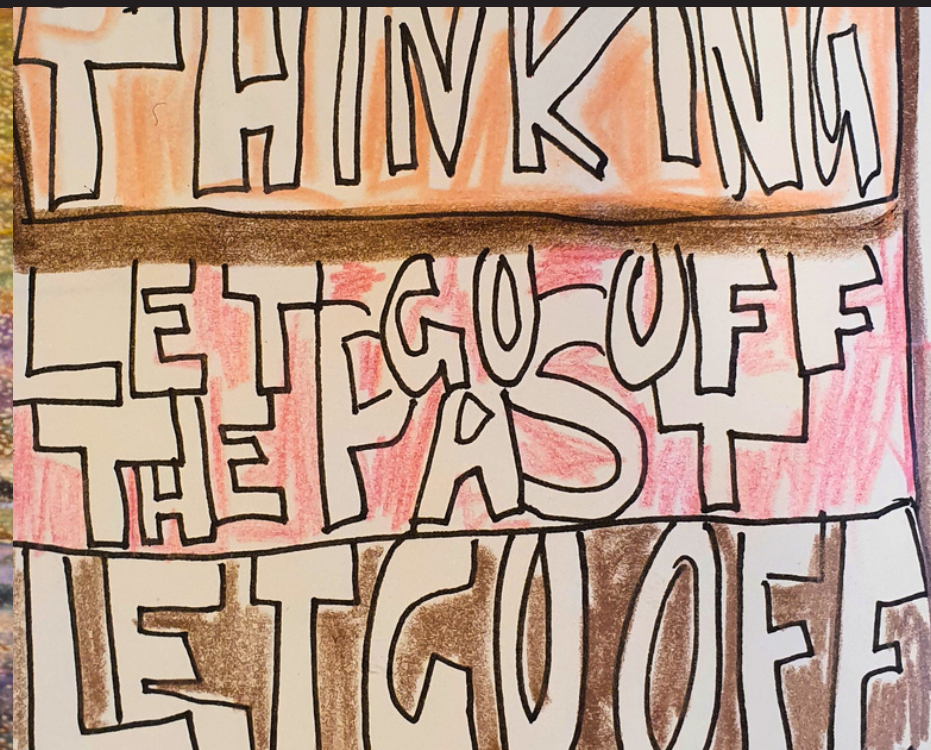 THINKING
LET GO OFF
THE PAST
LET GO OFF